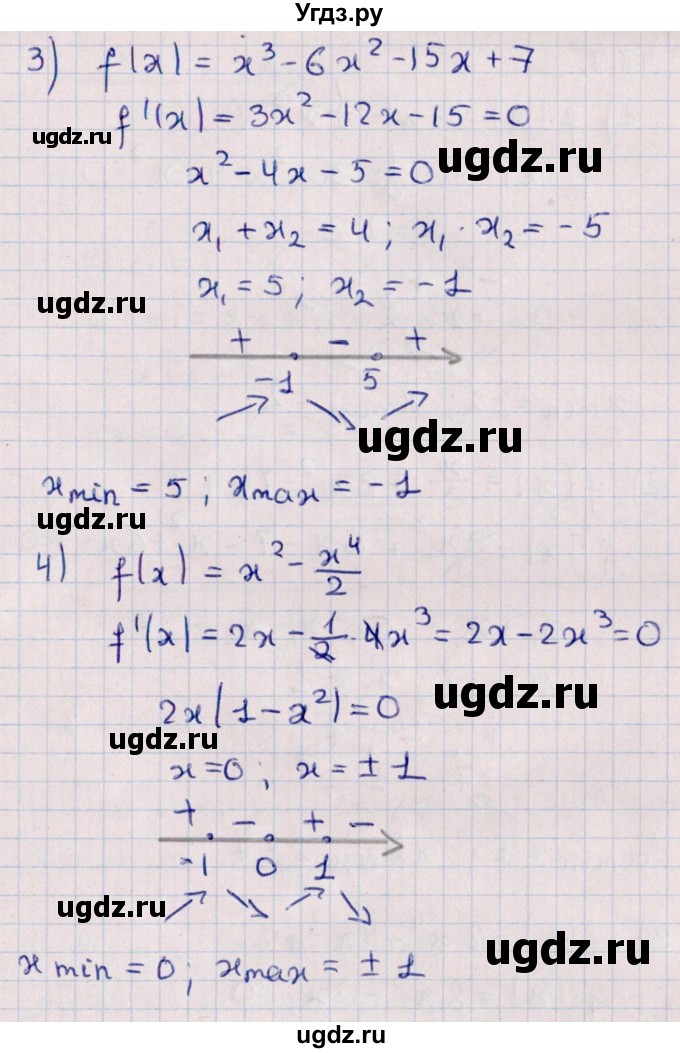 Угдз.ру
3) f(x) = x³ - 6x² - 15x + 7
ugdz.ru
f'(x) = 3x² - 12x - 15 = 0
ugdz.ru
x² - 4x - 5 = 0
x₁ + x₂ = 4 ; x₁ · x₂ = - 5
ugdz.ru
x₁ = 5 ; x₂ = - 1
+ - +
-1 5
ugdz.ru
xmin = 5 ; xmax = - 1
ugdz.ru
4) f(x) = x² - x⁴/2
f'(x) = 2x - 1/2 · 4x³ = 2x - 2x³ = 0
ugdz.ru
2x(1 - x²) = 0
ugdz.ru
x = 0 ; x = ± 1
+ - + -
-1 0 1
ugdz.ru
ugdz.ru
xmin = 0 ; xmax = ± 1
ugdz.ru